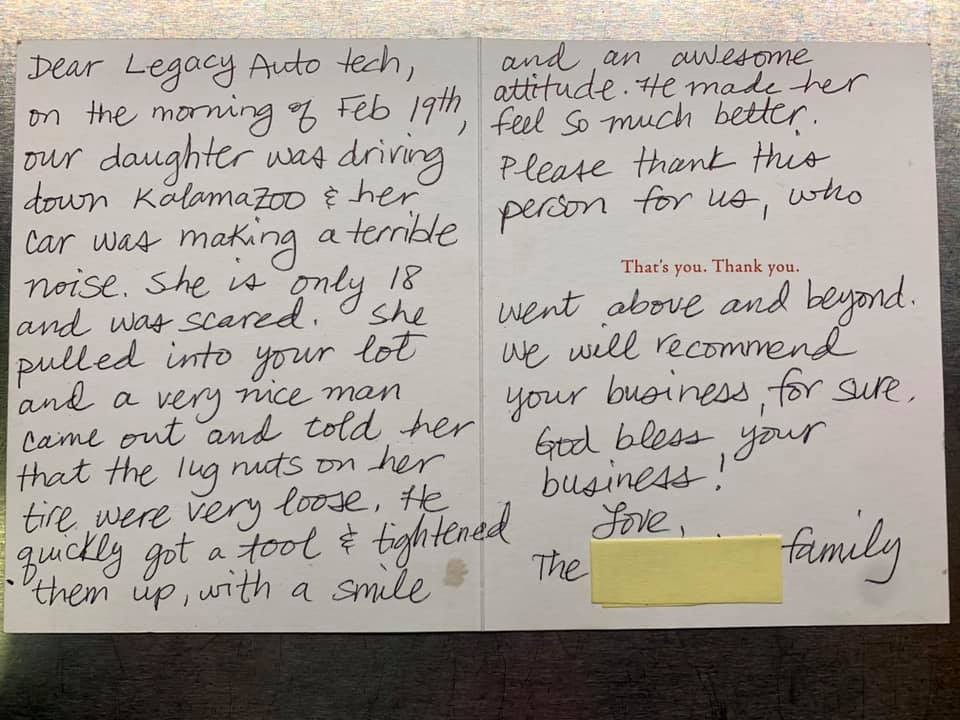 Dear Legacy Auto tech,
on the morning of Feb 19th,
our daughter was driving
down Kalamazoo & her
car was making a terrible
noise. She is only 18
and was scared. She
pulled into your lot
and a very nice man
came out and told her
that the lug nuts on her
tire were very loose. He
quickly got a tool & tightened
them up, with a smile
and an awesome
attitude. He made her
feel so much better.
Please thank this
person for us, who
That's you. Thank you.
went above and beyond.
We will recommend
your business, for sure.
God bless your
business!
Love,
The family